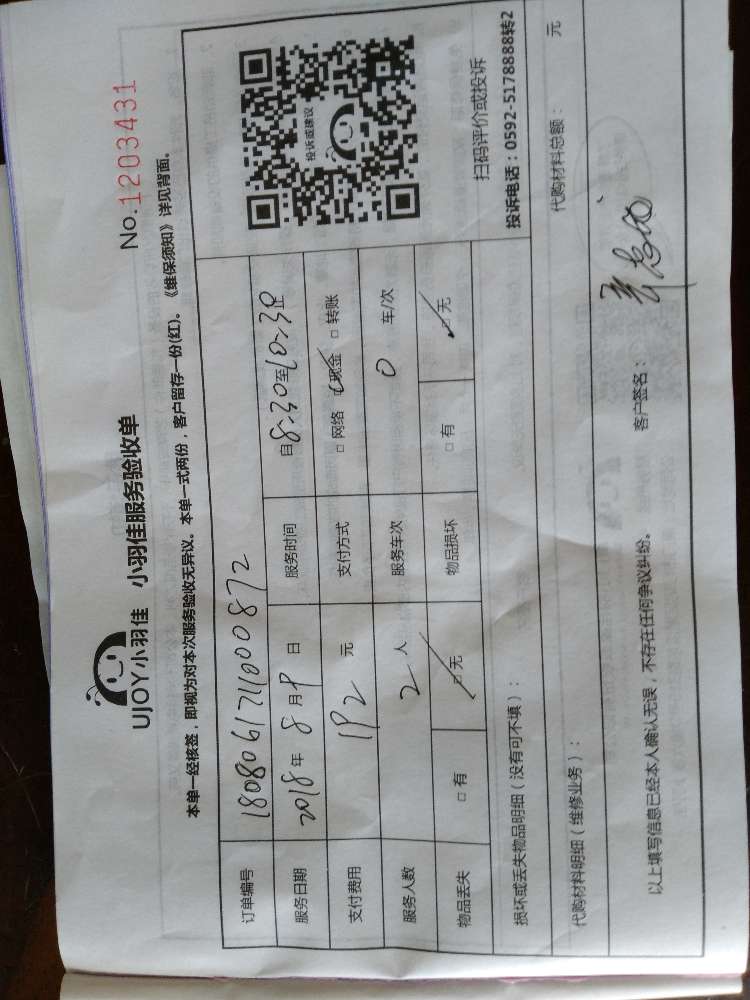 UJOY小羽佳 小羽佳服务验收单
No.1203431
本单一经核签，即视为对本次服务验收无异议。本单一式两份，客户留存一份(红)。《维保须知》详见背面。
订单编号 1808061711000872
投诉或建议
服务日期 2018年8月9日 服务时间 自8:30至10:30止
支付费用 192元 支付方式 □ 网络 □ 现金 □ 转账
服务人数 2人 服务车次 0 车/次
物品丢失 □ 有 □ 无 物品损坏 □ 有 □ 无
扫码评价或投诉
投诉电话：0592-5178888转2
损坏或丢失物品明细（没有可不填）：
代购材料明细（维修业务）： 代购材料总额： 元
以上填写信息已经本人确认无误，不存在任何争议纠纷。 客户签名：